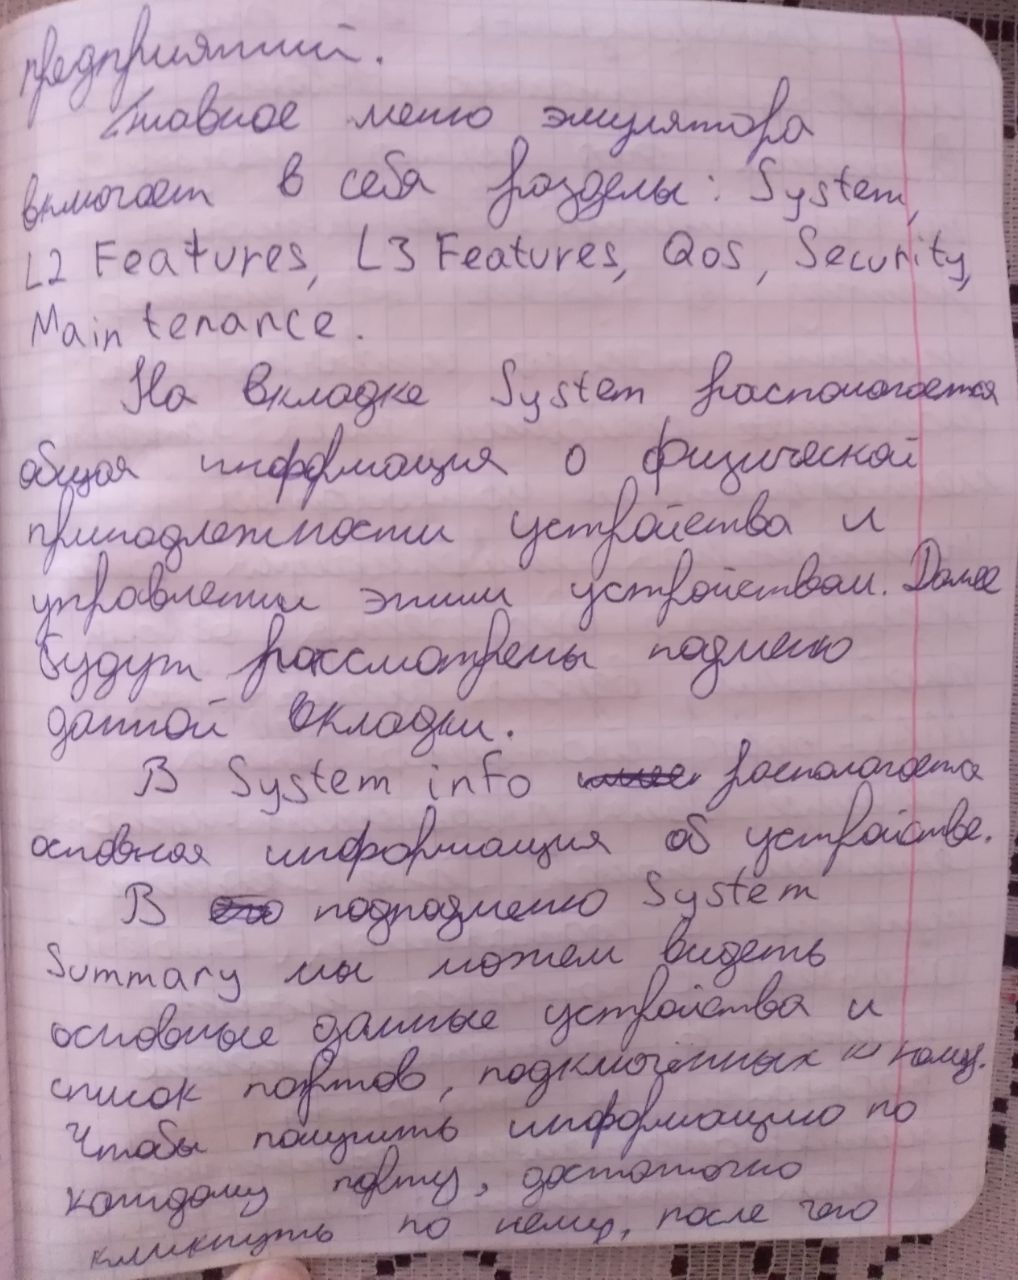 предприятий.
Главное меню эмулятора
включает в себя разделы: System,
L2 Features, L3 Features, QoS, Security,
Maintenance.
На вкладке System распологается
общая информация о физической
принадлежности устройства и
управлении этим устройством. Далее
будут рассмотрены подменю
данной вкладки.
В System info распологается
основная информация об устройстве.
В подподменю System
Summary мы можем видеть
основные данные устройства и
список портов, подключённых к нему.
Чтобы получить информацию по
каждому порту, достаточно
кликнуть по нему, после чего